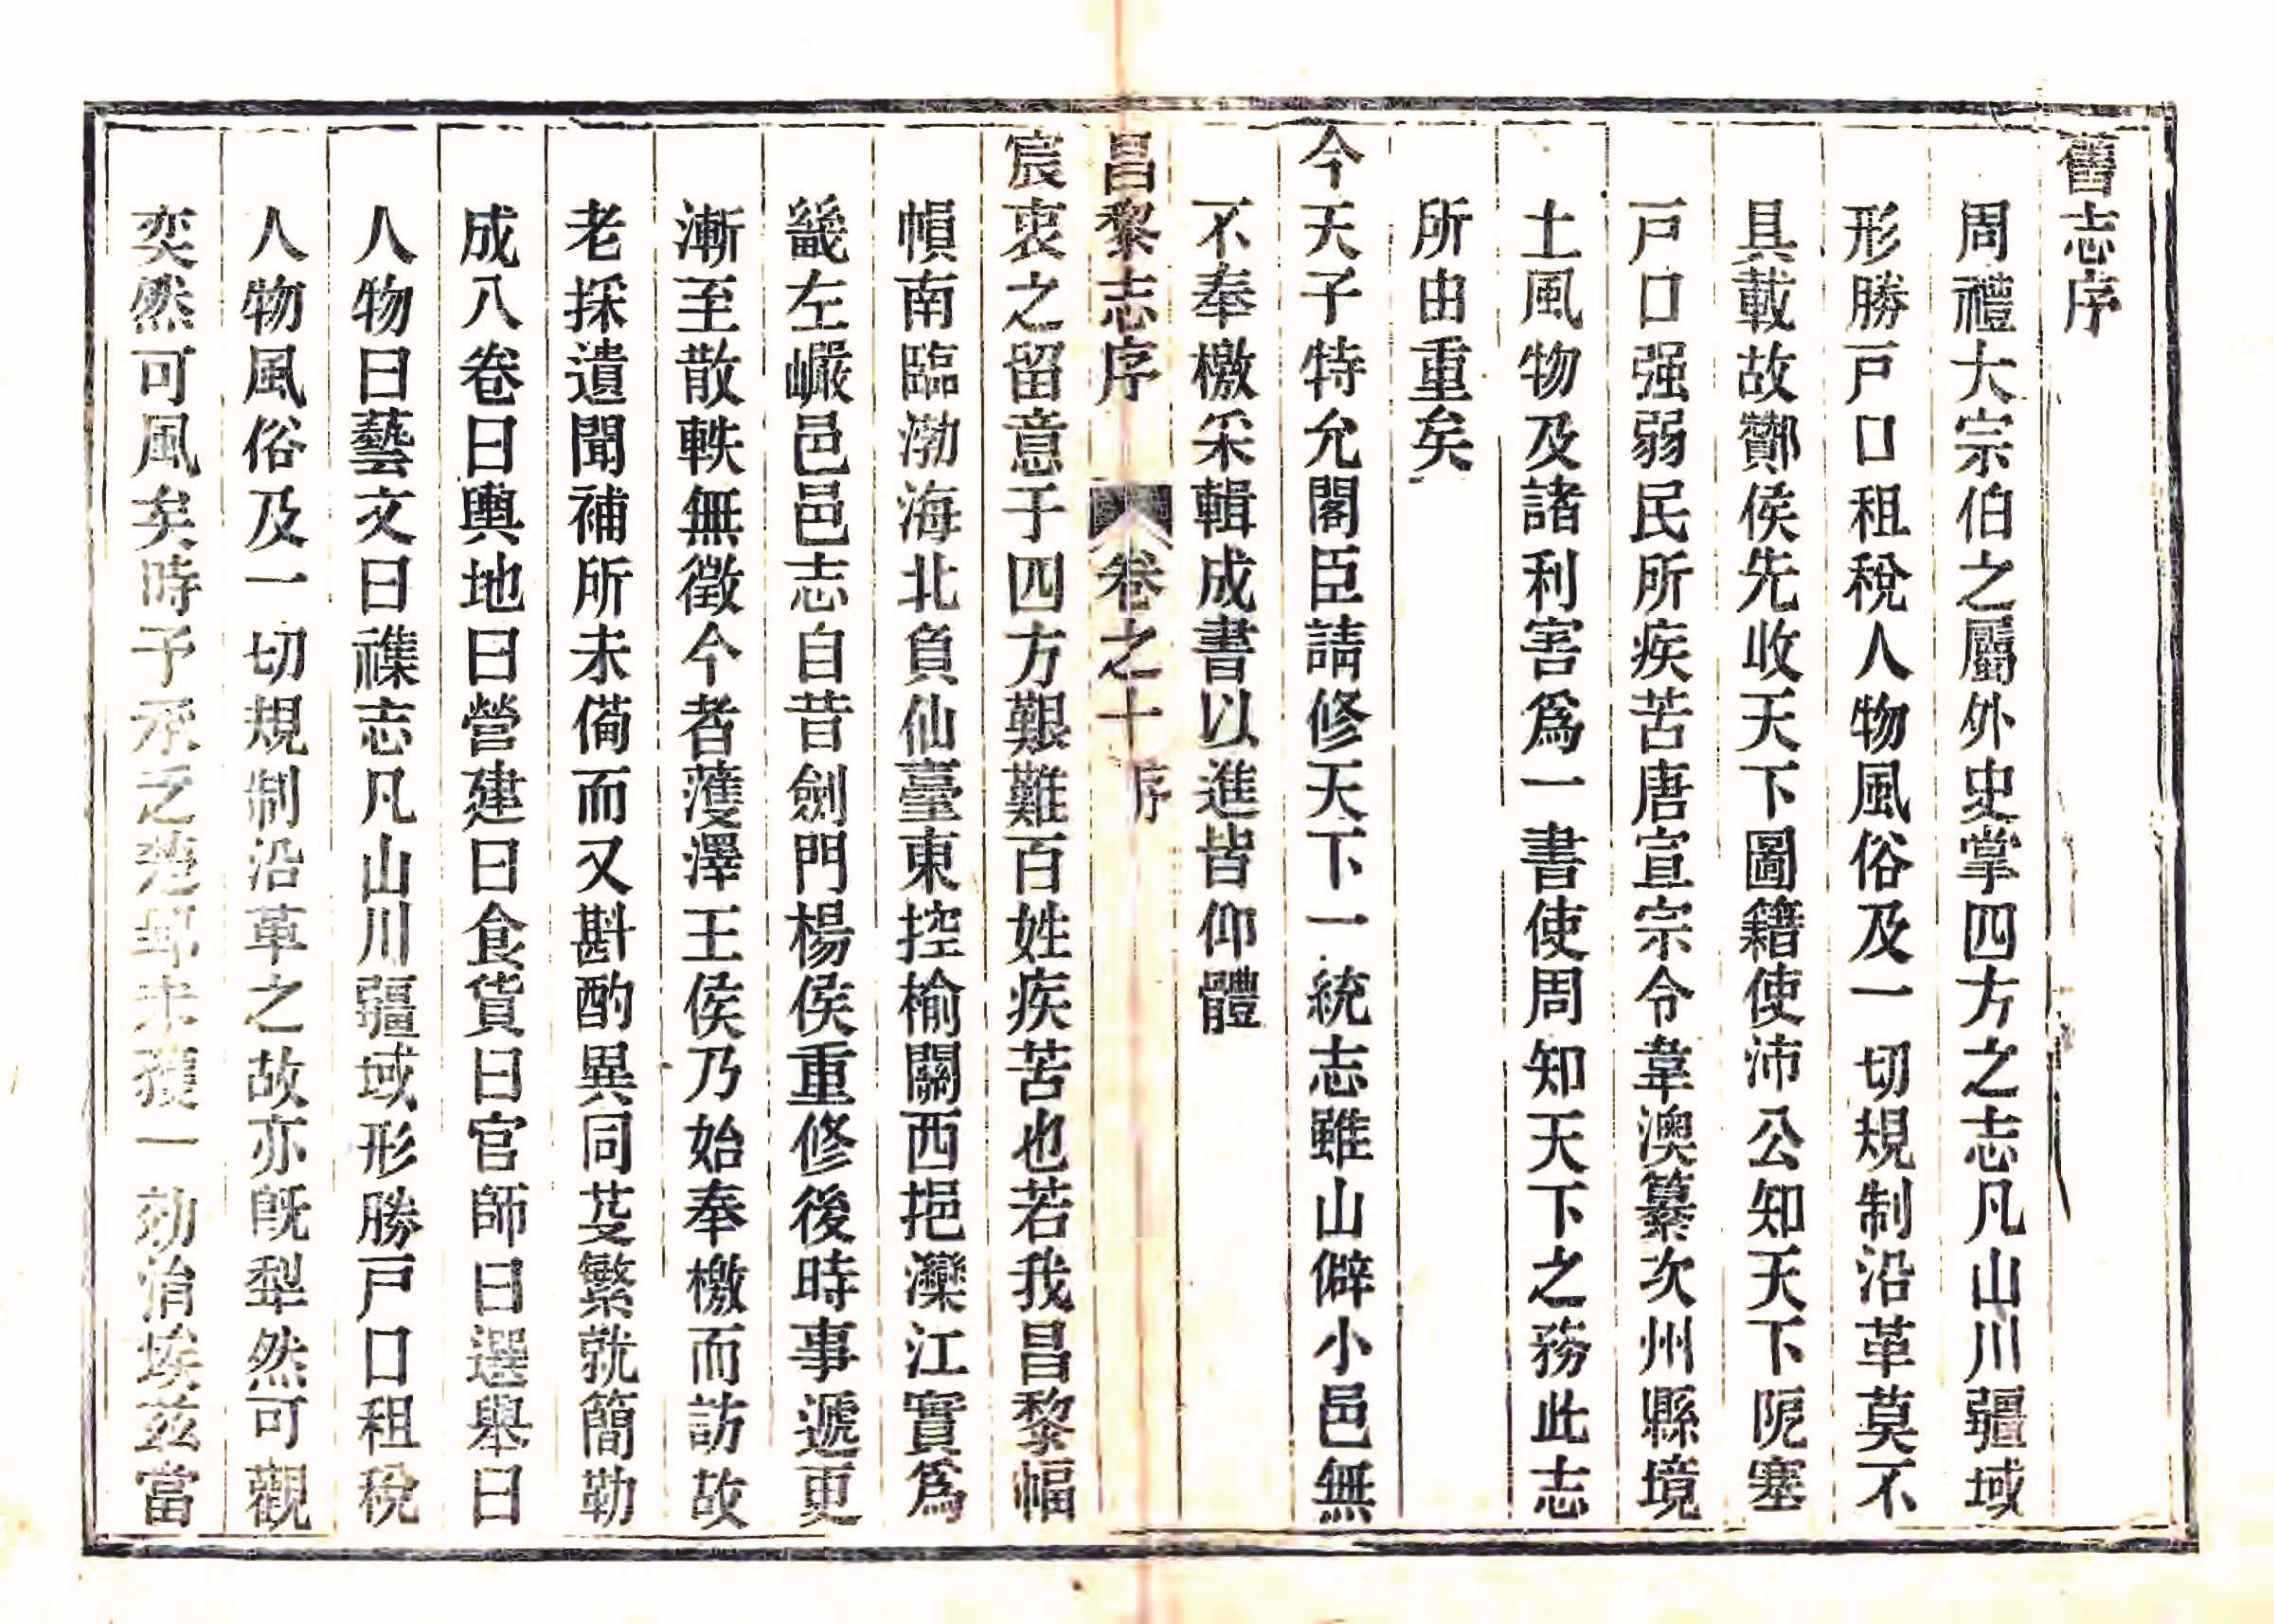 舊志序
周禮大宗伯之屬外史掌四方之志凡山川疆域
形勝戸口租稅人物風俗及一切規制沿革莫不
具載故酇侯先收天下圖籍使沛公知天下阨塞
戸口强弱民所疾苦唐宣宗令韋澳纂次州縣境
土風物及諸利害爲一書使周知天下之務此志
所由重矣
今天子特允閣臣請修天下一統志雖山僻小邑無
不奉檄采輯成書以進皆仰體
昌黎志序 卷之十 序
宸衷之留意于四方艱難百姓疾苦也若我昌黎幅
幀南臨渤海北負仙臺東控榆關西挹灤江實爲
畿左巖邑邑志自昔劍門楊侯重修後時事遞更
漸至散軼無徵今者濩澤王侯乃始奉檄而訪故
老採遺聞補所未備而又斟酌異同芟繁就簡勒
成八卷曰輿地曰營建曰食貨曰官師曰選舉曰
人物曰藝文曰襍志凡山川疆域形勝戸口租稅
人物風俗及一切規制沿革之故亦旣犁然可觀
奕然可風矣時予承乏 未獲一効涓埃茲當